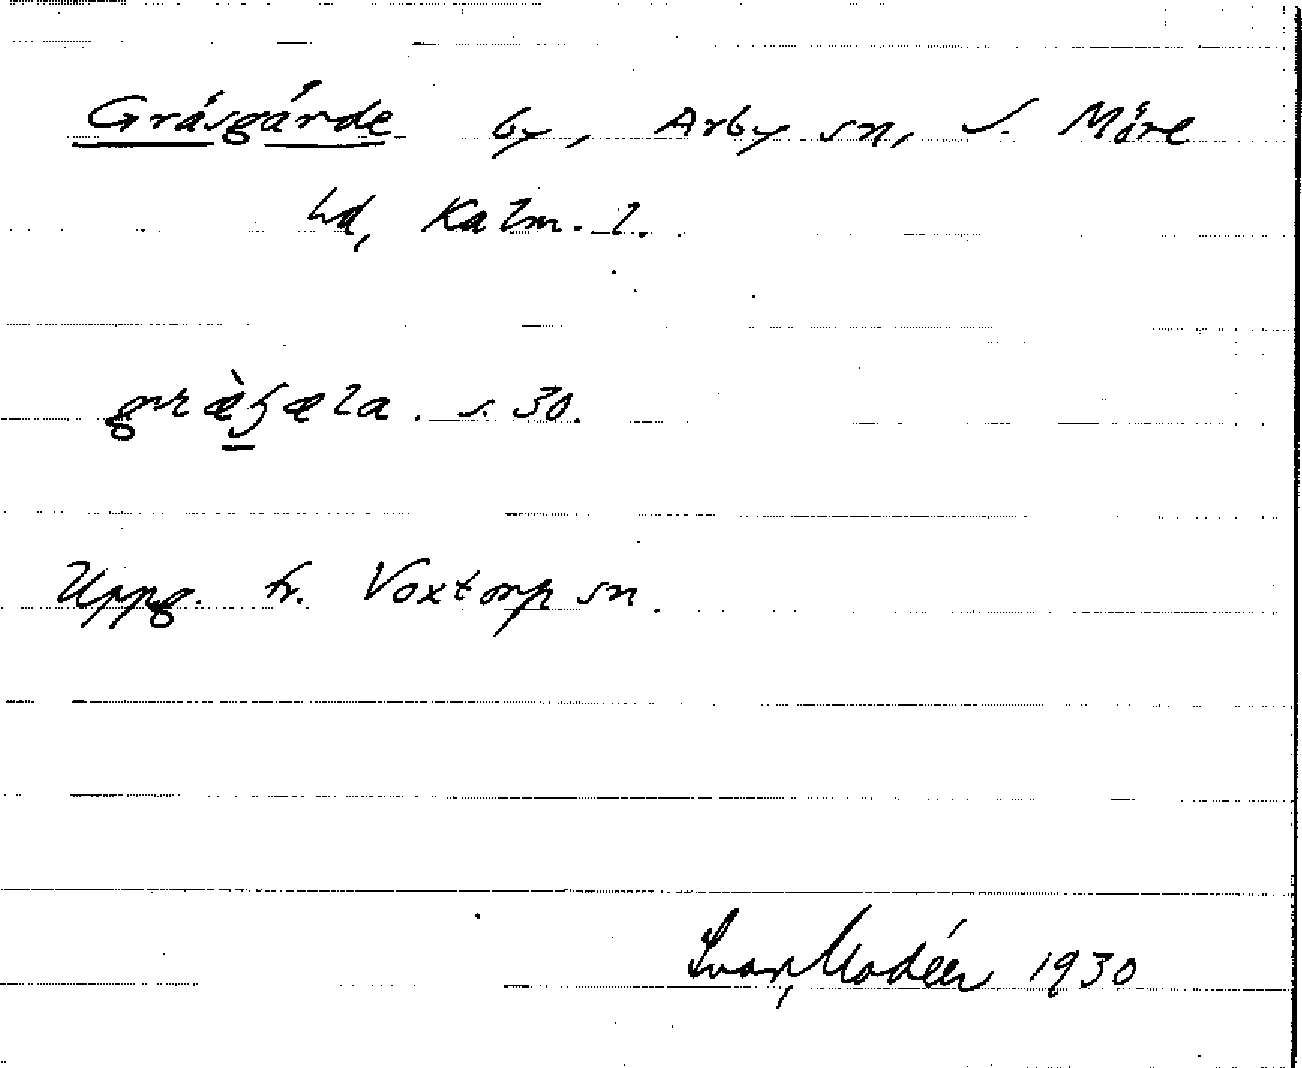 Gräsgärde by, Arby sn, S. Möre
hd, Kalm. l.
græ̀ɧæla. s. 30.
Uppg. fr. Voxtorp sn.
Ivar Modéer 1930